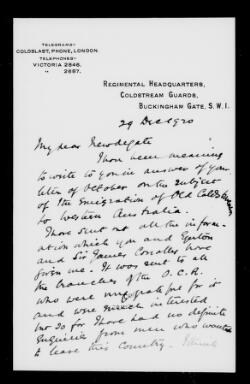 TELEGRAMS:-
COLDBLAST, PHONE, LONDON.
TELEPHONES:-
VICTORIA 2846.
" 2687.
REGIMENTAL HEADQUARTERS,
COLDSTREAM GUARDS,
BUCKINGHAM GATE, S.W.1.
29 Dec 1920
My dear Newdegate
I have been meaning
to write to you in answer of your
letter of October on the subject
of the Emigration of Old Coldstreamers
to Western Australia.
I have sent out all the inform-
ation which you and Egerton
and Sir James Connolly have
given me. It was sent to all
the branches of the O.C.A.
who were very grateful for it
and were much interested
but so far I have had no definite
enquiries from men who wanted
to leave this country. I think